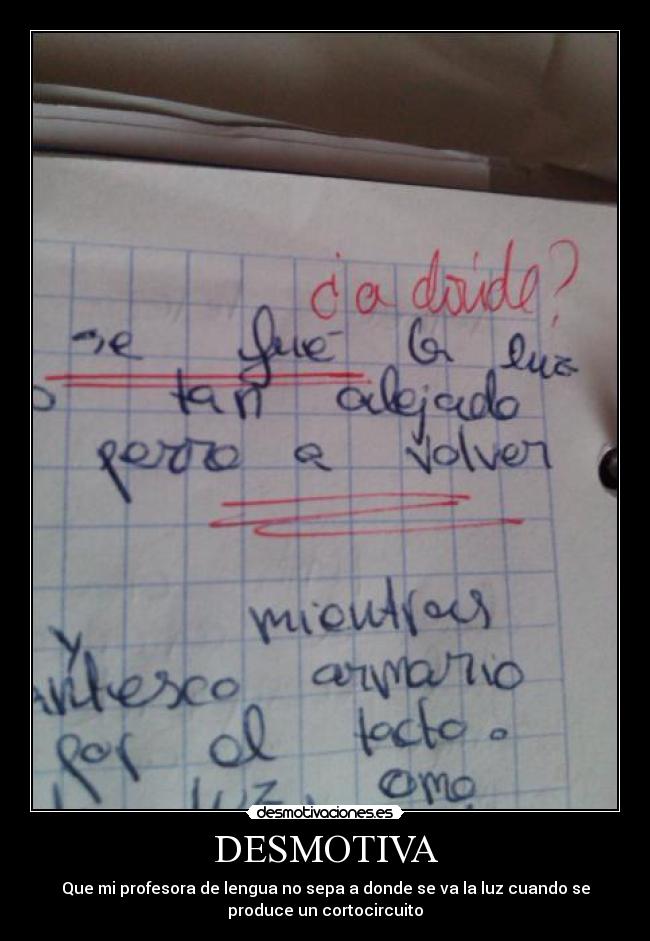 ¿a donde?
se fué la luz
o tan alejado
perro a volver
mientras
y
antesco armario
por el tacto.
luz, ome
desmotivaciones.es
DESMOTIVA
Que mi profesora de lengua no sepa a donde se va la luz cuando se
produce un cortocircuito